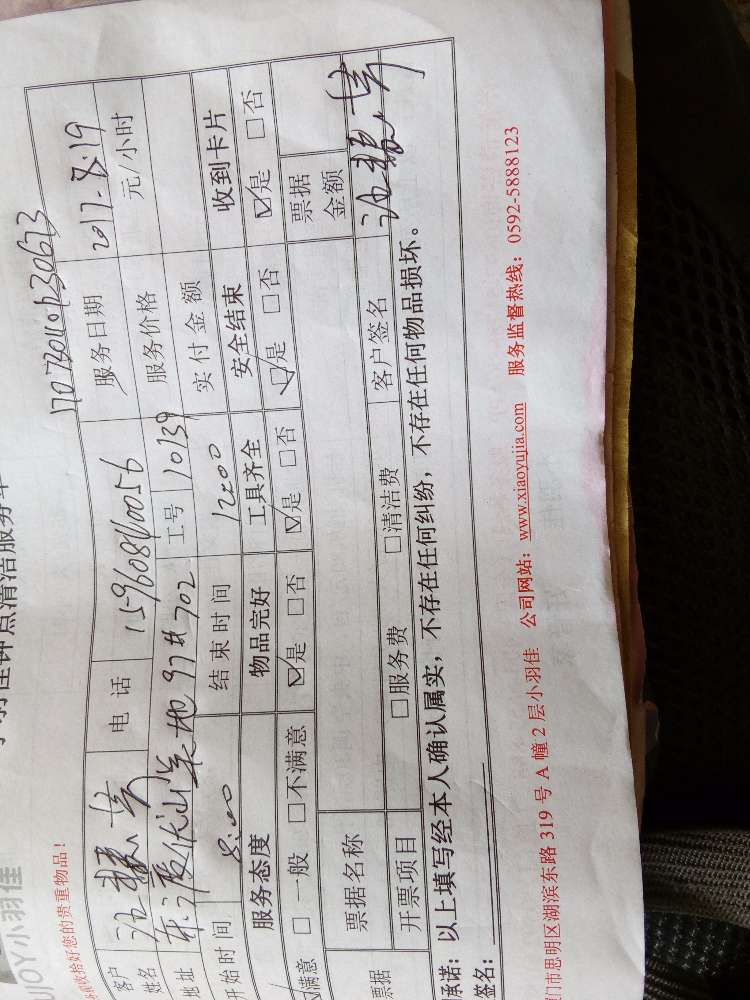 JOY小羽佳
小羽佳钟点清洁服务单
请收拾好您的贵重物品!
客户姓名 电话 15960840056 服务日期 2017.8.19
地址 97# 702 工号 10139 服务价格 元/小时
开始时间 8:00 结束时间 12:00 实付金额
服务态度 物品完好 工具齐全 安全结束 收到卡片
☑满意 □一般 □不满意 ☑是 □否 ☑是 □否 ☑是 □否 ☑是 □否
票据 票据名称 票据金额
开票项目 □服务费 □清洁费
承诺:以上填写经本人确认属实,不存在任何纠纷,不存在任何物品损坏。
签名: 客户签名
门市思明区湖滨东路 319 号 A 幢 2 层小羽佳 公司网站:www.xiaoyujia.com 服务监督热线:0592-5888123